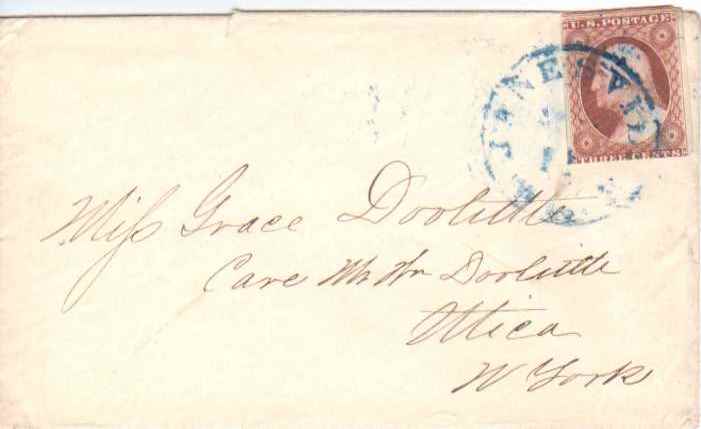 U.S. POSTAGE
JANESVIL
THREE CENTS
Miss Grace Doolittle
Care Mr Wm Doolittle
Utica
N York